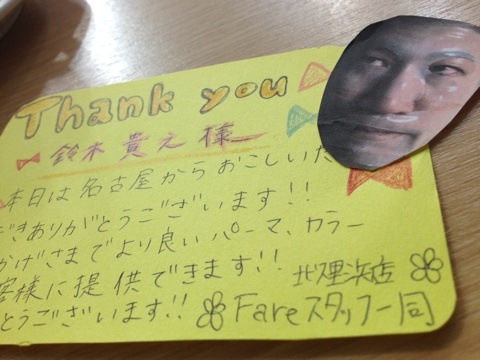 Thank you
鈴木貴之様
本日は名古屋からおこしいた
だきありがとうございます!!
かげさまでより良いパーマ、カラー
客様に提供できます!!
とうございます!! 北浜店
Fareスタッフ一同